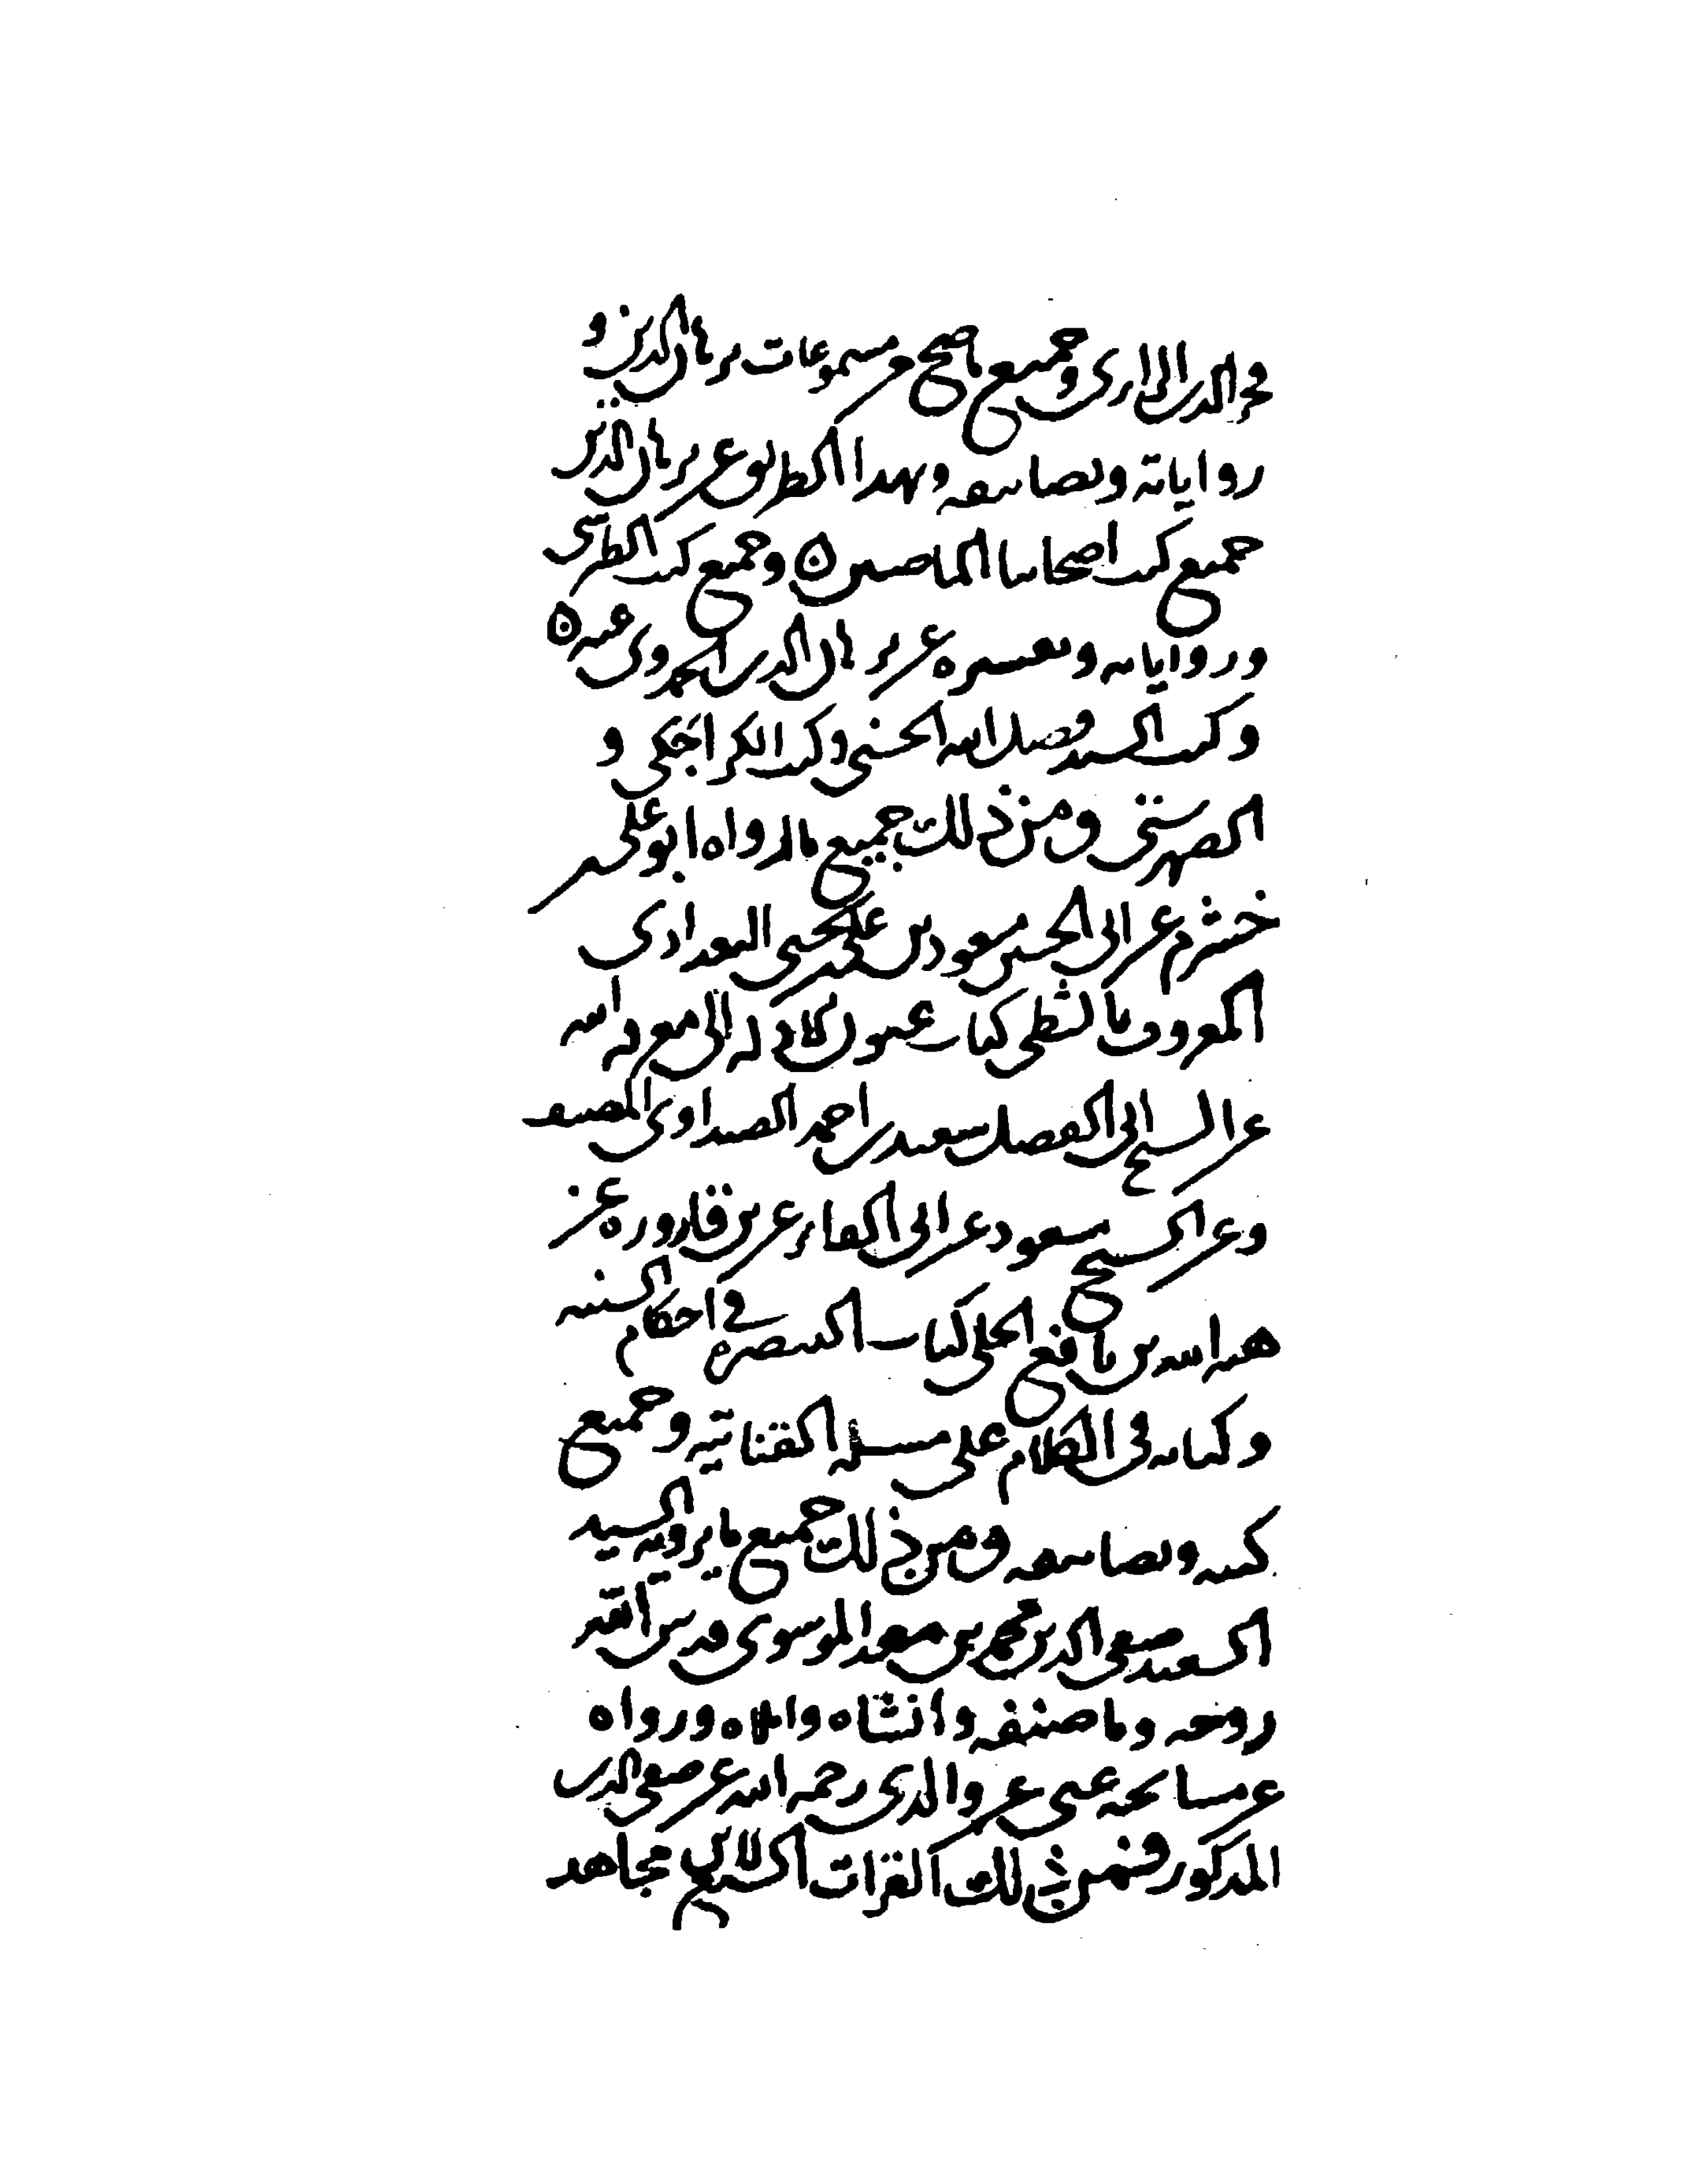 فخر الدين الرازى وجميع ما صح من مسموعات برهان الدين و
رواياته وتصانيفه وبهدا الطريق عن برهان الدين
جميع كتب اصحابنا الماضين ٥ وجميع كتب الطبرسى
ورواياته وتفسيره عن برهان الدين القزوينى عنه ٥
وكتب السيد فضل الله الحسنى وكتب الكراجكى و
الصهرشتى ومن ذلك جميع ما رواه ابو على بن
خشرم عن ابى الحسن مسعود بن على بن يحيى البغدادى
المعروف كتاب عيون الادله الى معرفه الله
عن الشيخ ابى الفضل سعيد بن احمد الصيداوى المصنف
وعن الشيخ مسعود عن ابى بن قارورة عن
هبه الله بن نافع الحلى كتاب التبصره فى احكام السنه
وكتابه فى الكلام على مسله وجميع
كتبه وتصانيفه ومن ذلك جميع ما يرويه السيد
السعيد صفى الدين محمد بن معد الموسوى قدس الله
روحه وما صنفه وانشاه واملاه ورواه
عن مشايخه عنى عن والدى رحمه الله عن صفى الدين
المذكور فمن ذلك القرات السبع لابن مجاهد